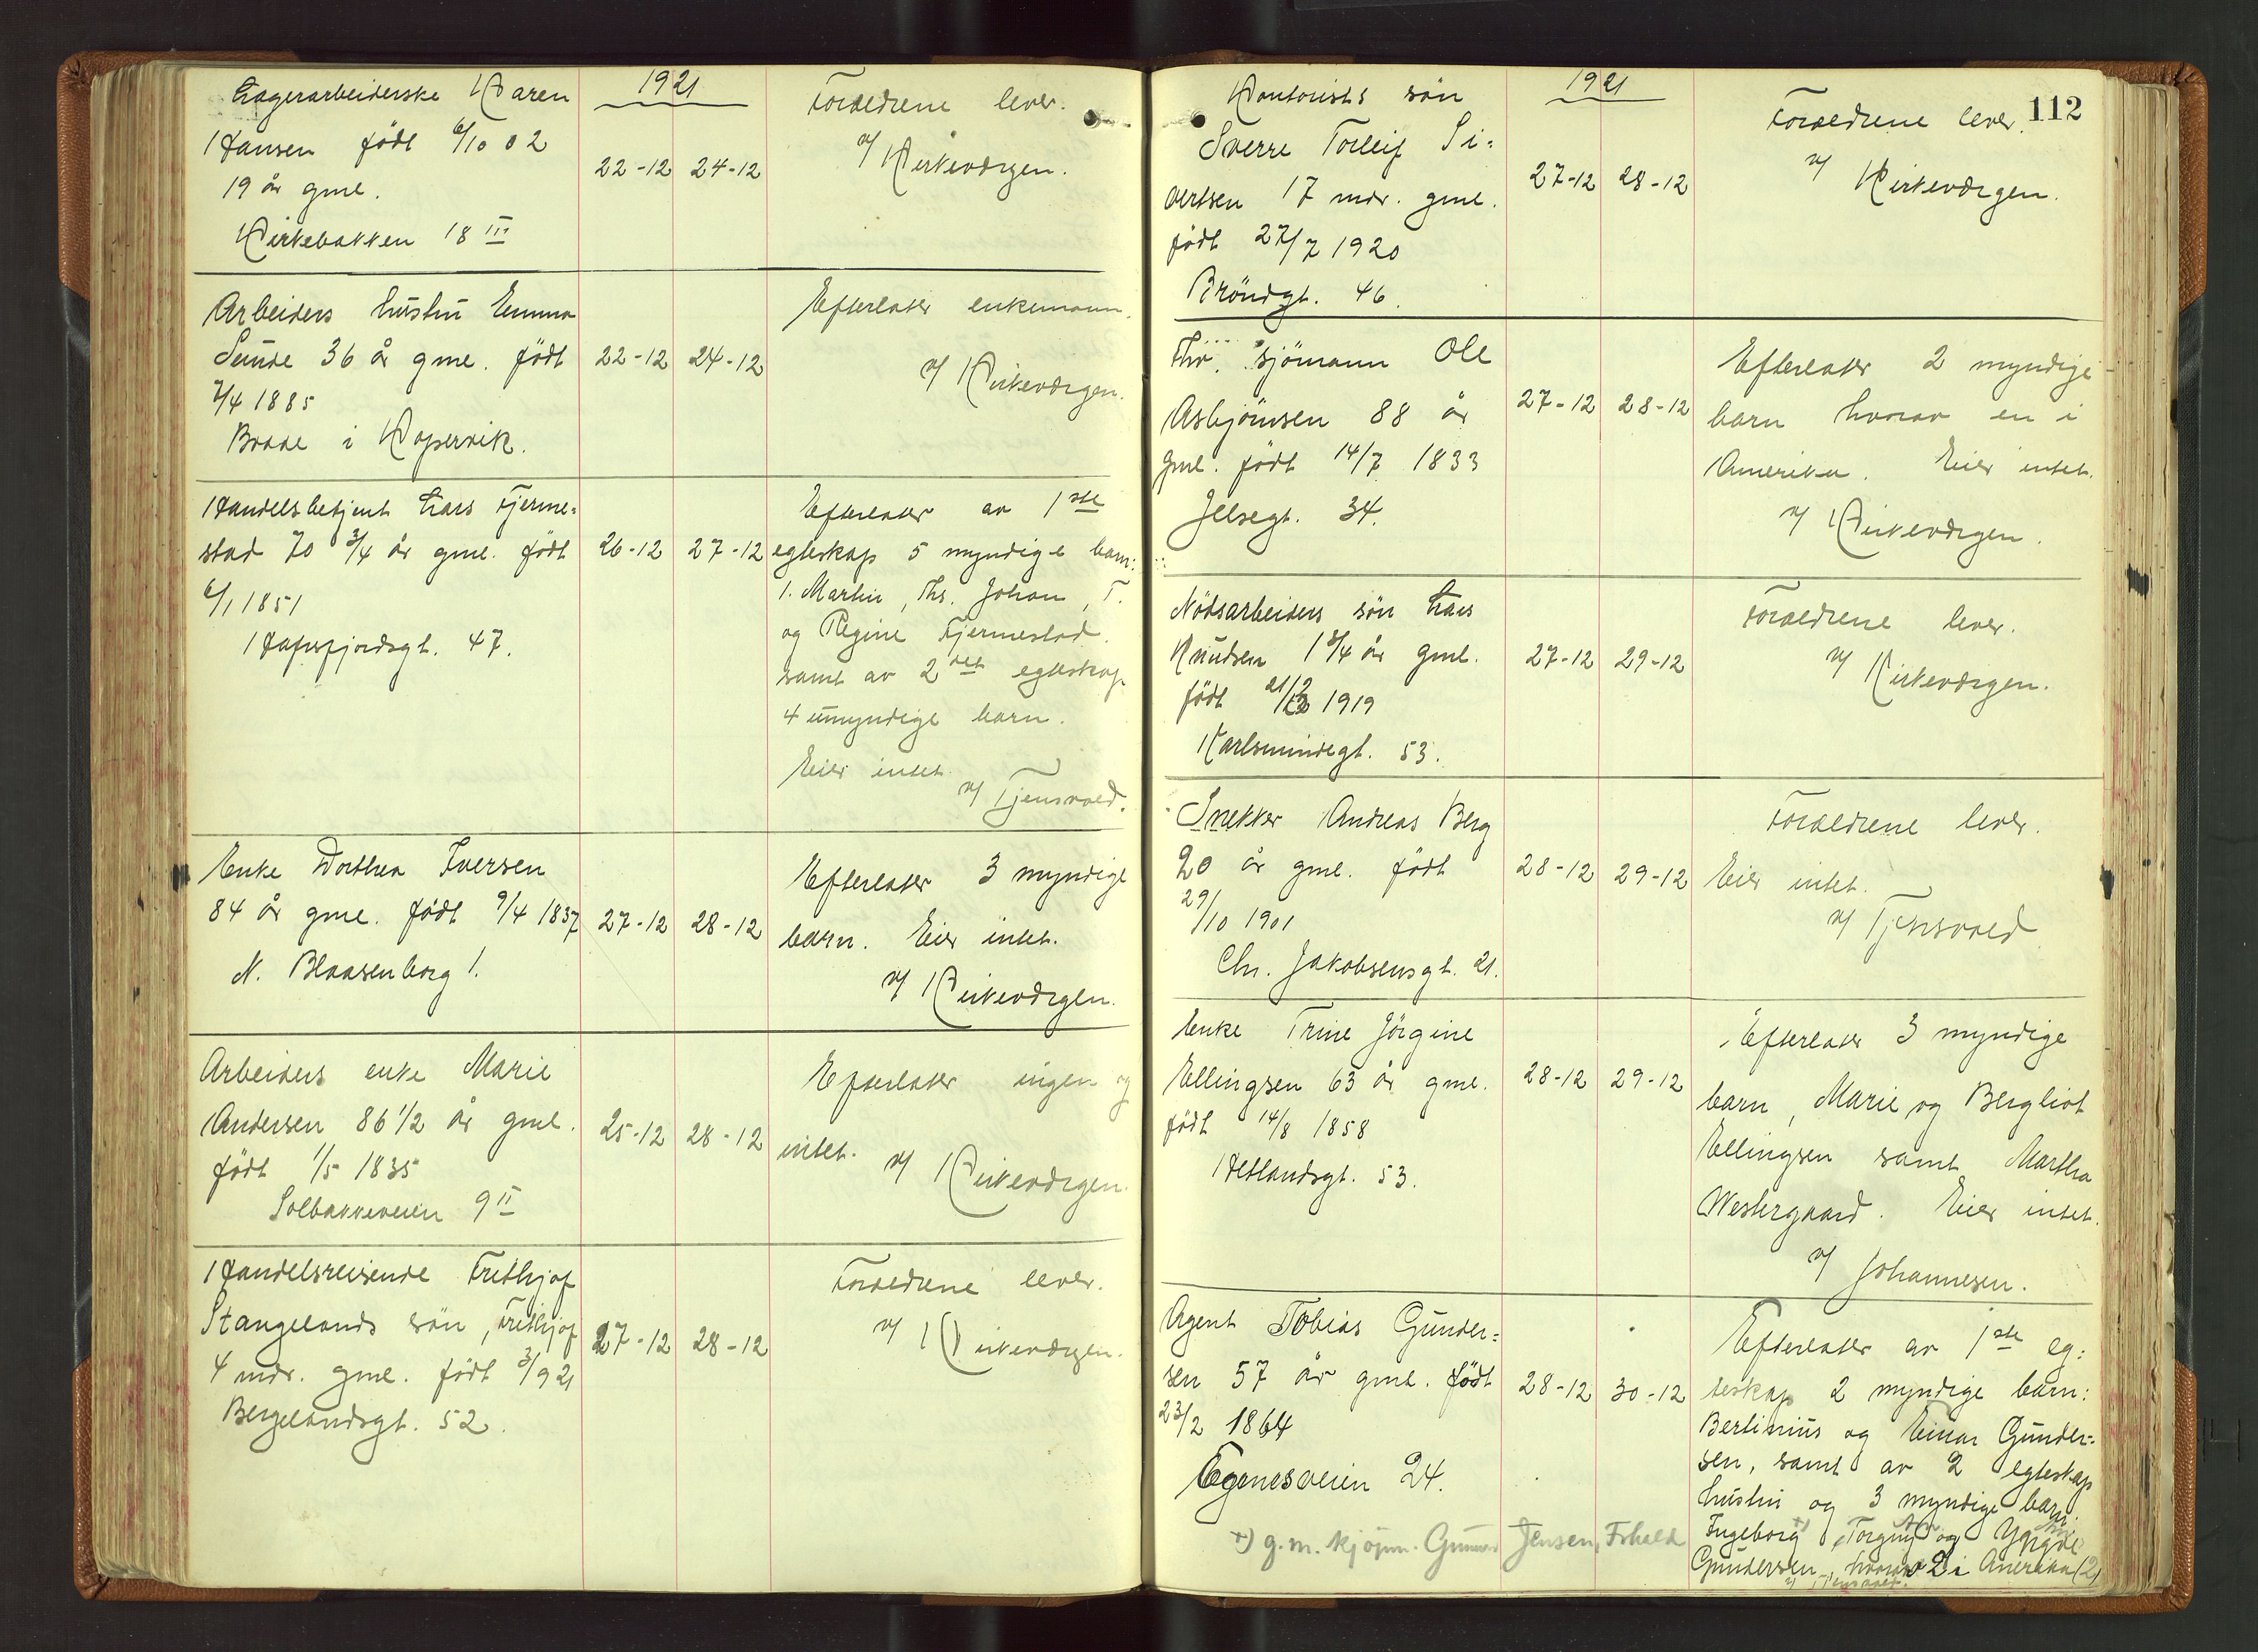 1921
Lagerarbeiderske Karen
Hansen født 6/10 02
19 år gml.
Kirkebakken 18 III
22-12 24-12
Forældrene lever.
v/ Kirkeværgen.
Arbeiders hustru Emma
Sunde 36 år gml. født
7/4 1885
Boade i Kopervik.
22-12 24-12
Efterlater enkemann.
v/ Kirkeværgen.
Handelsbetjent Lars Fjerme=
stad 70 3/4 år gml. født
6/1 1851
Hafrsfjordsgt. 47.
26-12 27-12
Efterlater av 1ste
egteskap 5 myndige barn:
1. Martin, Ths. Johan, T.
og Regine Fjermestad.
samt av 2det egteskap
4 umyndige barn.
Eier intet.
v/ Tjensvold.
Enke Dorthea Iversen
84 år gml. født 9/4 1837
N. Blaasenborg 1.
27-12 28-12
Efterlater 3 myndige
barn. Eier intet.
v/ Kirkeværgen.
Arbeiders enke Marie
Andersen 86 1/2 år gml.
født 1/5 1835
Solbakkeveien 9 II
25-12 28-12
Efterlater ingen og
intet.
v/ Kirkeværgen.
Handelsreisende Frithjof
Stangelands søn, Frithjof
4 mdr. gml. født 3/9 21
Bergelandsgt. 52.
27-12 28-12
Forældrene lever.
v/ Kirkeværgen.
112
1921
Kontorists søn
Sverre Torleif Si=
vertsen 17 mdr. gml.
født 27/7 1920
Brøndgt. 46.
27-12 28-12
Forældrene lever.
v/ Kirkeværgen.
Fhv. sjömann Ole
Asbjörnsen 88 år
gml. født 14/7 1833
Jelsegt. 34.
27-12 28-12
Efterlater 2 myndige
barn hvorav en i
Amerika. Eier intet.
v/ Kirkeværgen.
Nödsarbeiders sön Lars
Knudsen 1 3/4 år gml.
født 1919
Karlsmindegt. 53.
27-12 29-12
Forældrene lever.
v/ Kirkeværgen.
Snekker Andreas Berg
20 år gml. født
29/10 1901
Chr. Jakobsensgt. 21.
28-12 29-12
Forældrene lever.
Eier intet.
v/ Tjensvold
Enke Trine Jörgine
Ellingsen 63 år gml.
født 14/8 1858
Hetlandsgt. 53.
28-12 29-12
Efterlater 3 myndige
barn, Marie og Bergliot
Ellingsen samt Martha
Westergaard. Eier intet.
v/ Johannesen.
Agent Tobias Gunder=
sen 57 år gml. født
23/2 1864
Egenesveien 24.
28-12 30-12
Efterlater av 1ste eg=
teskap 2 myndige barn:
Bertinius og Einar Gunder=
sen, samt av 2 egteskap
hustru og 3 myndige barn.
Ingeborg x), Torgny og Yngve
Gundersen, hvorav 2 i Amerika (2)
v/ Tjensvold.
x) g.m. kjøpm. Gunnar Jensen,